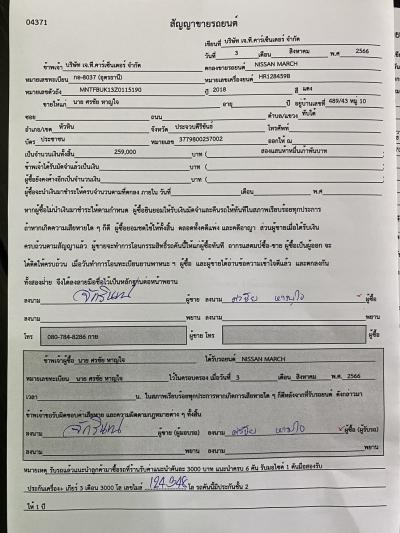 04371
สัญญาขายรถยนต์
เขียนที่ บริษัท เจ.ที.คาร์เซ็นเตอร์ จำกัด
วันที่ 3 เดือน สิงหาคม พ.ศ 2566
ข้าพเจ้า บริษัท เจ.ที.คาร์เซ็นเตอร์ จำกัด ตกลงขายรถยนต์ NISSAN MARCH
หมายเลขทะเบียน กอ-8037 (อุดรธานี) หมายเลขเครื่องยนต์ HR128459B
หมายเลขตัวถัง MNTFBUK13Z0115190 ปี 2018 สี แดง
ขายให้แก่ นาย ศรชัย หาญใจ อายุ ปี อยู่บ้านเลขที่ 489/43 หมู่ 10
ซอย ถนน ตำบล/แขวง ทับใต้
อำเภอ/เขต หัวหิน จังหวัด ประจวบคีรีขันธ์ โทรศัพท์
บัตร ประชาชน หมายเลข 3779800257002 ออกให้ ณ
เป็นจำนวนเงินทั้งสิ้น 259,000 บาท ( สองแสนห้าหมื่นเก้าพันบาท
ข้าพเจ้าได้รับมัดจำแล้วเป็นเงิน บาท (
ผู้ซื้อยังคงค้างอีกเป็นจำนวนเงิน บาท (
ผู้ซื้อจะนำเงินมาชำระให้ครบจำนวนตามที่ตกลง ภายใน วันที่ เดือน พ.ศ
หากผู้ซื้อไม่นำเงินมาชำระให้ตามกำหนด ผู้ซื้อยินยอมให้ริบเงินมัดจำและคืนรถให้ทันทีในสภาพเรียบร้อยทุกประการ
ถ้าหากเกิดความเสียหายใด ๆ ก็ดี ผู้ซื้อยอมชดใช้ให้ทั้งสิ้น ตลอดทั้งคดีแพ่ง และคดีอาญา ส่วนผู้ขายเมื่อได้รับเงิน
ครบถ้วนตามสัญญาแล้ว ผู้ขายจะทำการโอนกรรมสิทธิ์รถคันนี้ให้แก่ผู้ซื้อทันที จากแสตมป์ซื้อ-ขาย ผู้ซื้อเป็นผู้ออก จะ
ได้คิดให้ครบถ้วน เมื่อวันทำการโอนทะเบียนยานพาหนะ ฯ ผู้ซื้อ และผู้ขายได้อ่านข้อความเข้าใจดีแล้ว และตกลงกัน
ทั้งสองฝ่าย จึงได้ลงลายมือชื่อไว้เป็นหลักฐานต่อหน้าพยาน
ลงนาม จักรินทน์ ผู้ขาย ลงนาม ศรชัย หาญใจ ผู้ซื้อ
ลงนาม พยาน ลงนาม พยาน
โทร 080-784-8286 กาย ผู้ขาย โทร ผู้ซื้อ
ข้าพเจ้าผู้ซื้อ นาย ศรชัย หาญใจ ได้รับรถยนต์ NISSAN MARCH
หมายเลขทะเบียน นาย ศรชัย หาญใจ ไว้ในครอบครอง เมื่อวันที่ 3 เดือน สิงหาคม พ.ศ. 2566
เวลา น. ในสภาพเรียบร้อยทุกประการหากเกิดการเสียหายใด ๆ ก็ดีหลังจากที่รับรถยนต์ ดังกล่าวมา
ข้าพเจ้าขอรับผิดชอบค่าเสียหาย และความผิดตามกฎหมายต่าง ๆ ทั้งสิ้น
ลงนาม จักรินทน์ ผู้ขาย (ผู้มอบรถ) ลงนาม ศรชัย หาญใจ ผู้ซื้อ (ผู้รับรถ)
ลงนาม พยาน ลงนาม พยาน
หมายเหตุ รับรถแล้วแนะนำลูกค้ามาซื้อรถที่ร้านรับค่าแนะนำคันละ 3000 บาท แนะนำครบ 6 คัน รับมอไซค์ 1 คันมือสองรับ
ประกันเครื่อง+ เกียร์ 3 เดือน 3000 โล เลขไมล์ 124,948 โล รถคันนี้มีประกันชั้น 2
ให้ 1 ปี